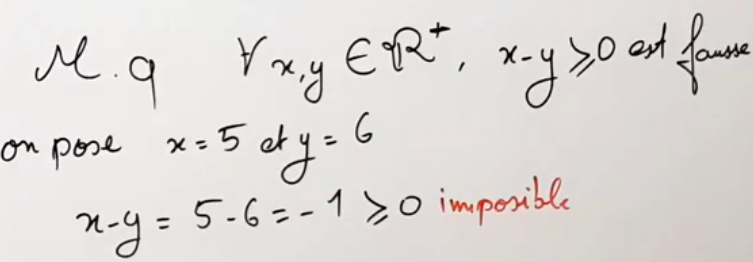 M.q ∀x,y ∈ ℝ⁺, x-y ≥ 0 est fausse
on pose x = 5 et y = 6
x-y = 5-6 = -1 ≥ 0 imposible